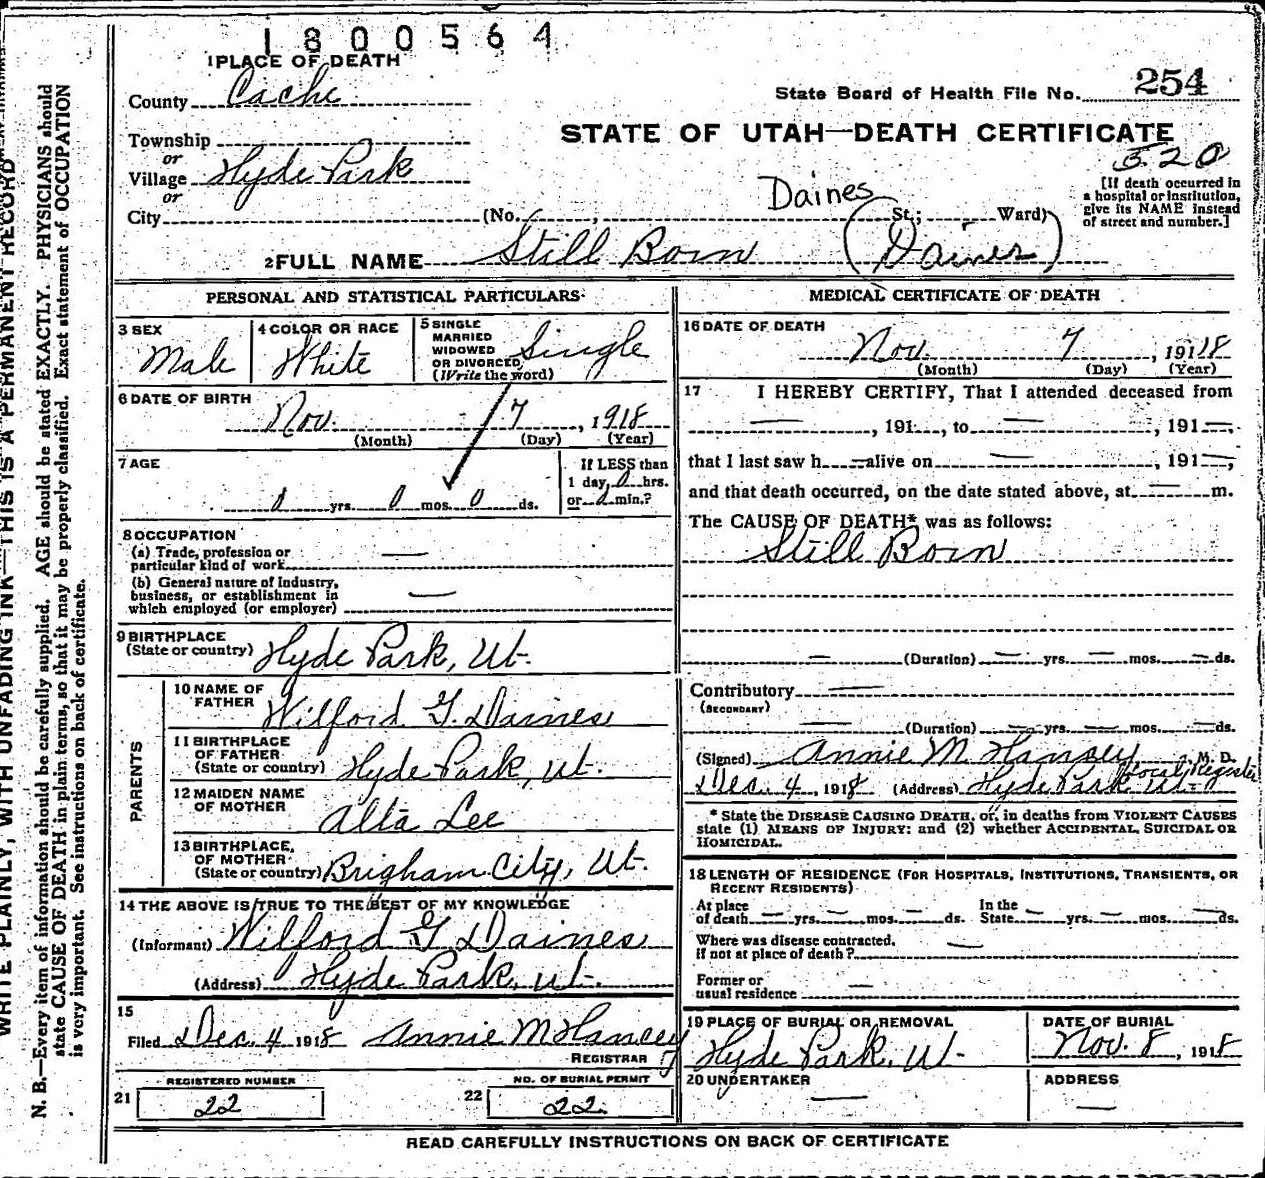 1800564
1 PLACE OF DEATH
County Cache
State Board of Health File No. 254
STATE OF UTAH—DEATH CERTIFICATE
520
Township
or
Village Hyde Park
or
City (No. , St.; Ward)
Daines
[If death occurred in
a hospital or institution,
give its NAME instead
of street and number.]
2 FULL NAME Still Born (Daines)
PERSONAL AND STATISTICAL PARTICULARS
3 SEX
Male
4 COLOR OR RACE
White
5 SINGLE
MARRIED
WIDOWED
OR DIVORCED
(Write the word)
Single
6 DATE OF BIRTH
Nov. 7, 1918
(Month) (Day) (Year)
7 AGE
0 yrs. 0 mos. 0 ds.
If LESS than
1 day, 0 hrs.
or 0 min.?
8 OCCUPATION
(a) Trade, profession or
particular kind of work —
(b) General nature of Industry,
business, or establishment in
which employed (or employer) —
9 BIRTHPLACE
(State or country) Hyde Park, Ut.
PARENTS
10 NAME OF
FATHER Wilford G. Daines
11 BIRTHPLACE
OF FATHER
(State or country) Hyde Park, Ut.
12 MAIDEN NAME
OF MOTHER Alta Lee
13 BIRTHPLACE,
OF MOTHER
(State or country) Brigham City, Ut.
14 THE ABOVE IS TRUE TO THE BEST OF MY KNOWLEDGE
(Informant) Wilford G Daines
(Address) Hyde Park, Ut.
15
Filed Dec. 4 1918 Annie M Hancey
REGISTRAR
REGISTERED NUMBER
21 22
NO. OF BURIAL PERMIT
22 22
MEDICAL CERTIFICATE OF DEATH
16 DATE OF DEATH
Nov. 7, 1918
(Month) (Day) (Year)
17 I HEREBY CERTIFY, That I attended deceased from
—, 191 , to —, 191—,
that I last saw h—alive on —, 191—,
and that death occurred, on the date stated above, at — m.
The CAUSE OF DEATH* was as follows:
Still Born
— (Duration) — yrs. — mos. — ds.
Contributory —
(SECONDARY)
— (Duration) — yrs. — mos. — ds.
(Signed) Annie M Hancey, M. D.
Local Register
Dec. 4, 1918 (Address) Hyde Park Ut.
* State the DISEASE CAUSING DEATH, or, in deaths from VIOLENT CAUSES
state (1) MEANS OF INJURY: and (2) whether ACCIDENTAL, SUICIDAL OR
HOMICIDAL.
18 LENGTH OF RESIDENCE (FOR HOSPITALS, INSTITUTIONS, TRANSIENTS, OR
RECENT RESIDENTS)
At place
of death — yrs. — mos. — ds.
In the
State — yrs. — mos. — ds.
Where was disease contracted,
if not at place of death? —
Former or
usual residence —
19 PLACE OF BURIAL OR REMOVAL
Hyde Park, Ut.
DATE OF BURIAL
Nov. 8, 1918
20 UNDERTAKER
—
ADDRESS
—
READ CAREFULLY INSTRUCTIONS ON BACK OF CERTIFICATE
WRITE PLAINLY, WITH UNFADING INK—THIS IS A PERMANENT RECORD
N. B.—Every item of information should be carefully supplied. AGE should be stated EXACTLY. PHYSICIANS should
state CAUSE OF DEATH in plain terms, so that it may be properly classified. Exact statement of OCCUPATION
is very important. See instructions on back of certificate.